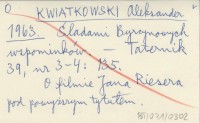 O KWIATKOWSKI Aleksander
1963. Śladami Byronowych
wspomnień – Taternik
39, nr 3-4: 135.
O filmie Jana Riesera
pod powyższym tytułem.